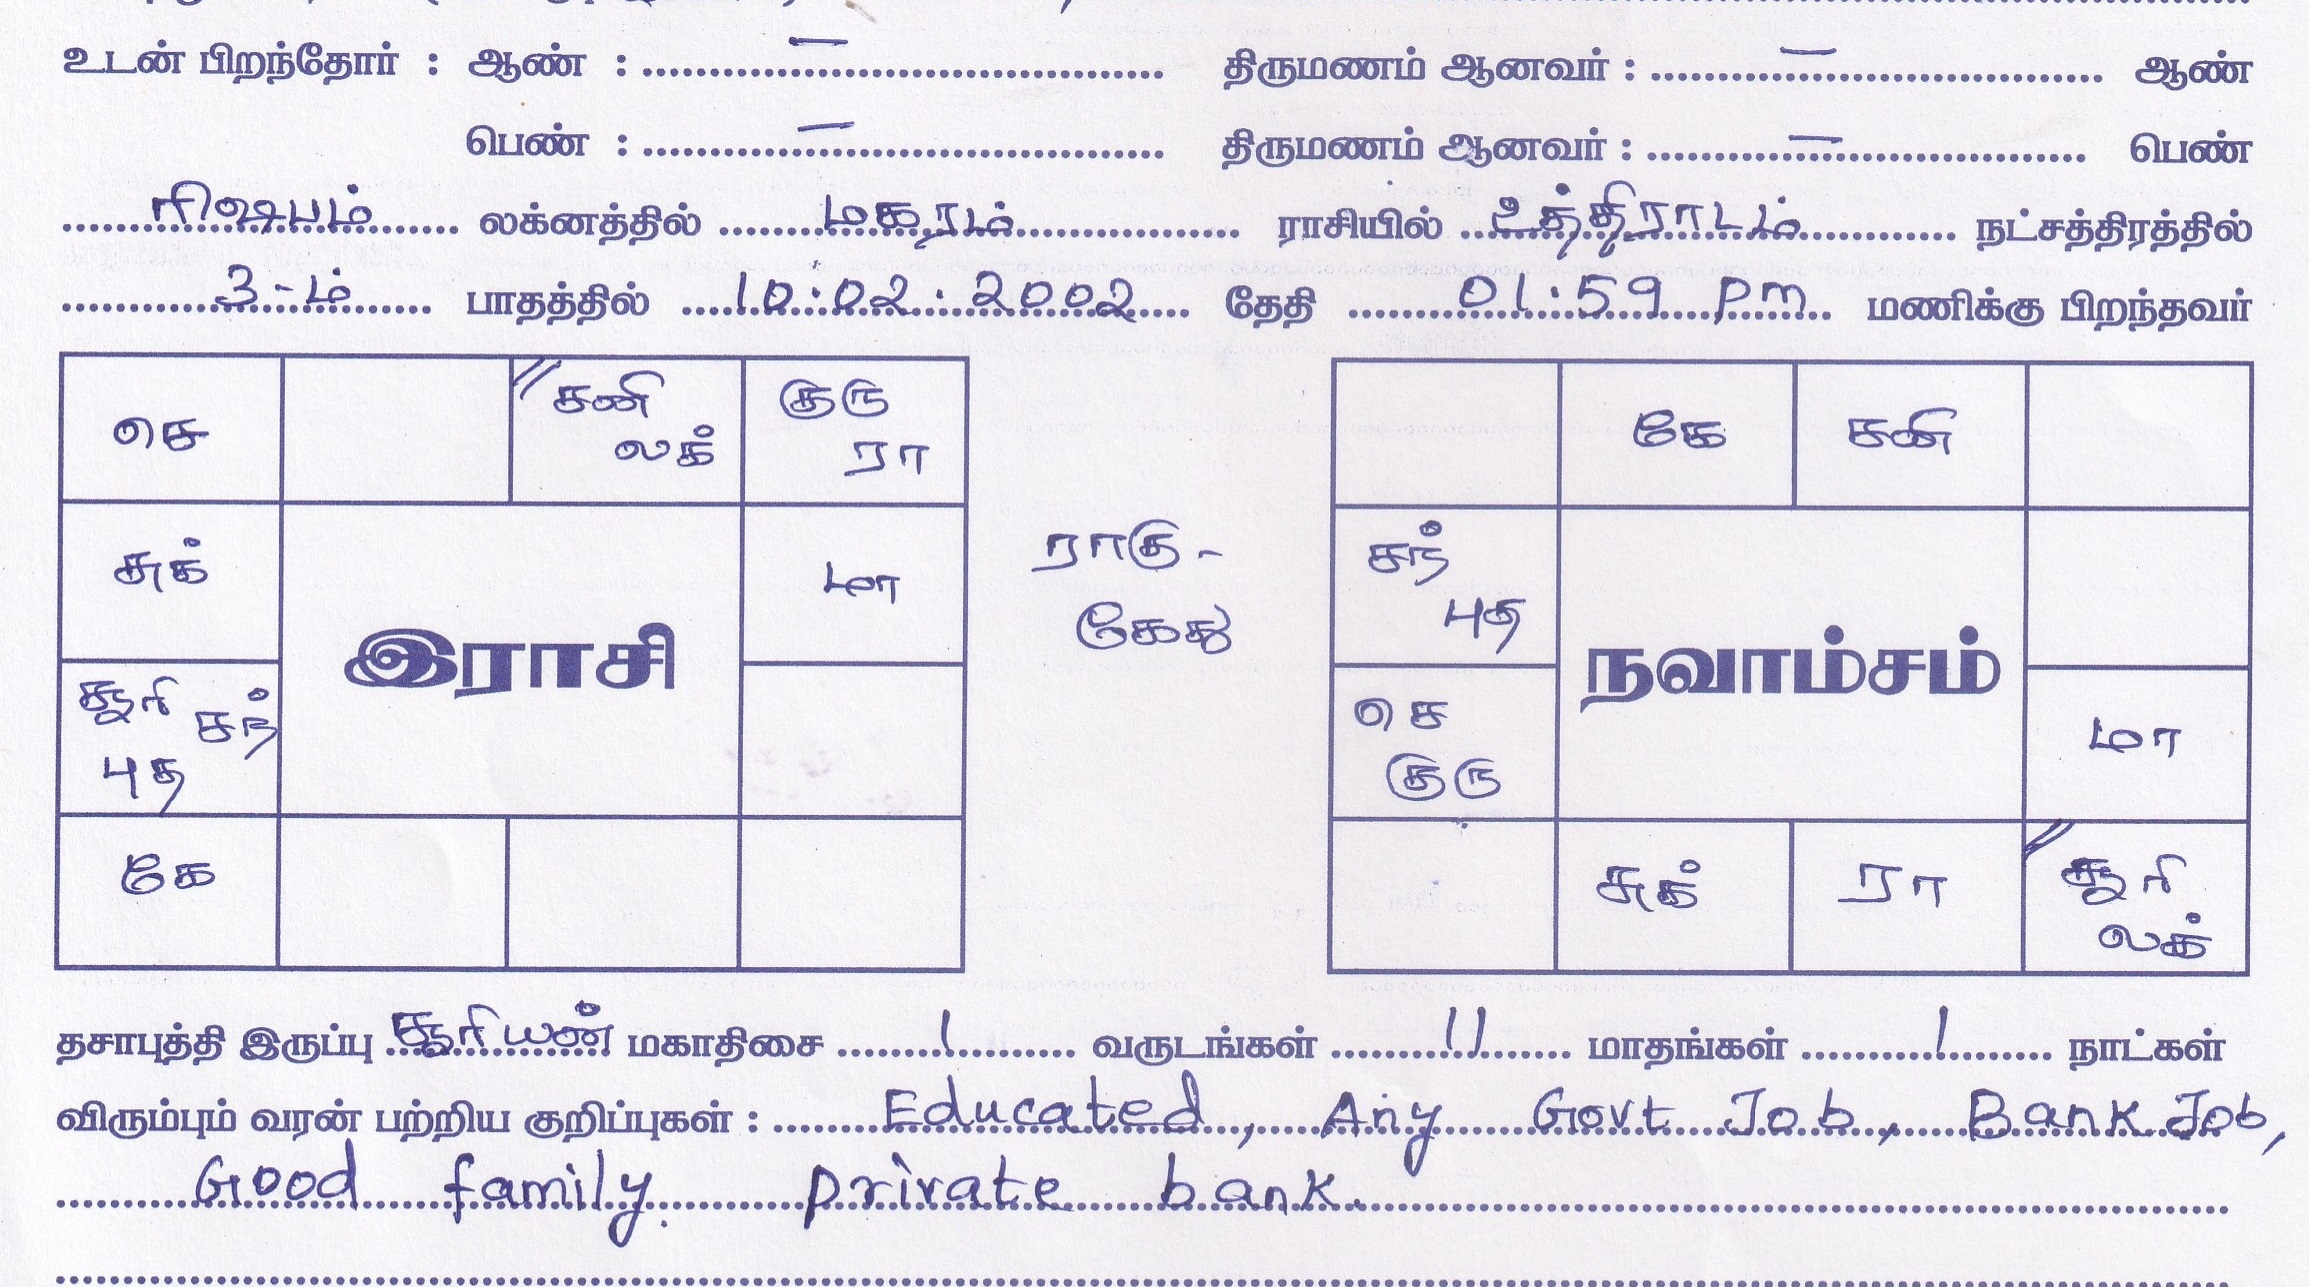 உடன் பிறந்தோர் : ஆண் : — திருமணம் ஆனவர் : — ஆண்
பெண் : — திருமணம் ஆனவர் : — பெண்
ரிஷபம் லக்னத்தில் மகரம் ராசியில் உத்திராடம் நட்சத்திரத்தில்
3-ம் பாதத்தில் 10:02:2002 தேதி 01:59 pm மணிக்கு பிறந்தவர்
செ
சனி
லக்
குரு
ரா
சுக்
மா
இராசி
சூரி சந்
புத
கே
ராகு -
கேது
கே
சனி
சந்
புத
நவாம்சம்
செ
குரு
மா
சுக்
ரா
சூரி
லக்
தசாபுத்தி இருப்பு சூரியன் மகாதிசை 1 வருடங்கள் 11 மாதங்கள் 1 நாட்கள்
விரும்பும் வரன் பற்றிய குறிப்புகள் : Educated, Any Govt Job, Bank Job,
Good family. private bank.